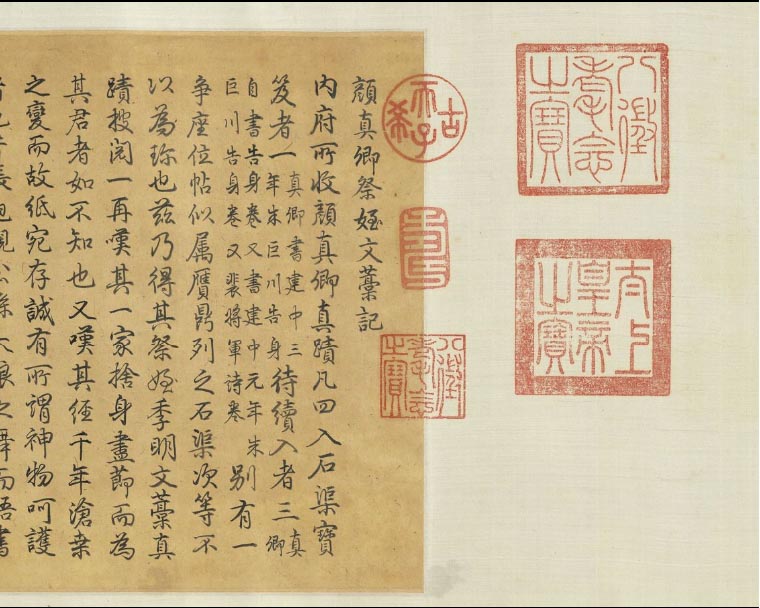 八徵耄念之寶
太上皇帝之寶
古稀天子
壽
八徵耄念之寶
顏真卿祭姪文藁記
內府所收顏真卿真蹟凡四入石渠寶
笈者一真卿書建中三年朱巨川告身待續入者三真卿
自書告身卷又書建中元年朱巨川告身卷又裴將軍诗卷別有一
爭座位帖似属贗鼎列之石渠次等不
以為珎也茲乃得其祭姪季明文藁真
蹟披閱一再嘆其一家捨身盡節而為
其君者如不知也又嘆其經千年滄桒
之變而故紙宛存誠有所謂神物呵護